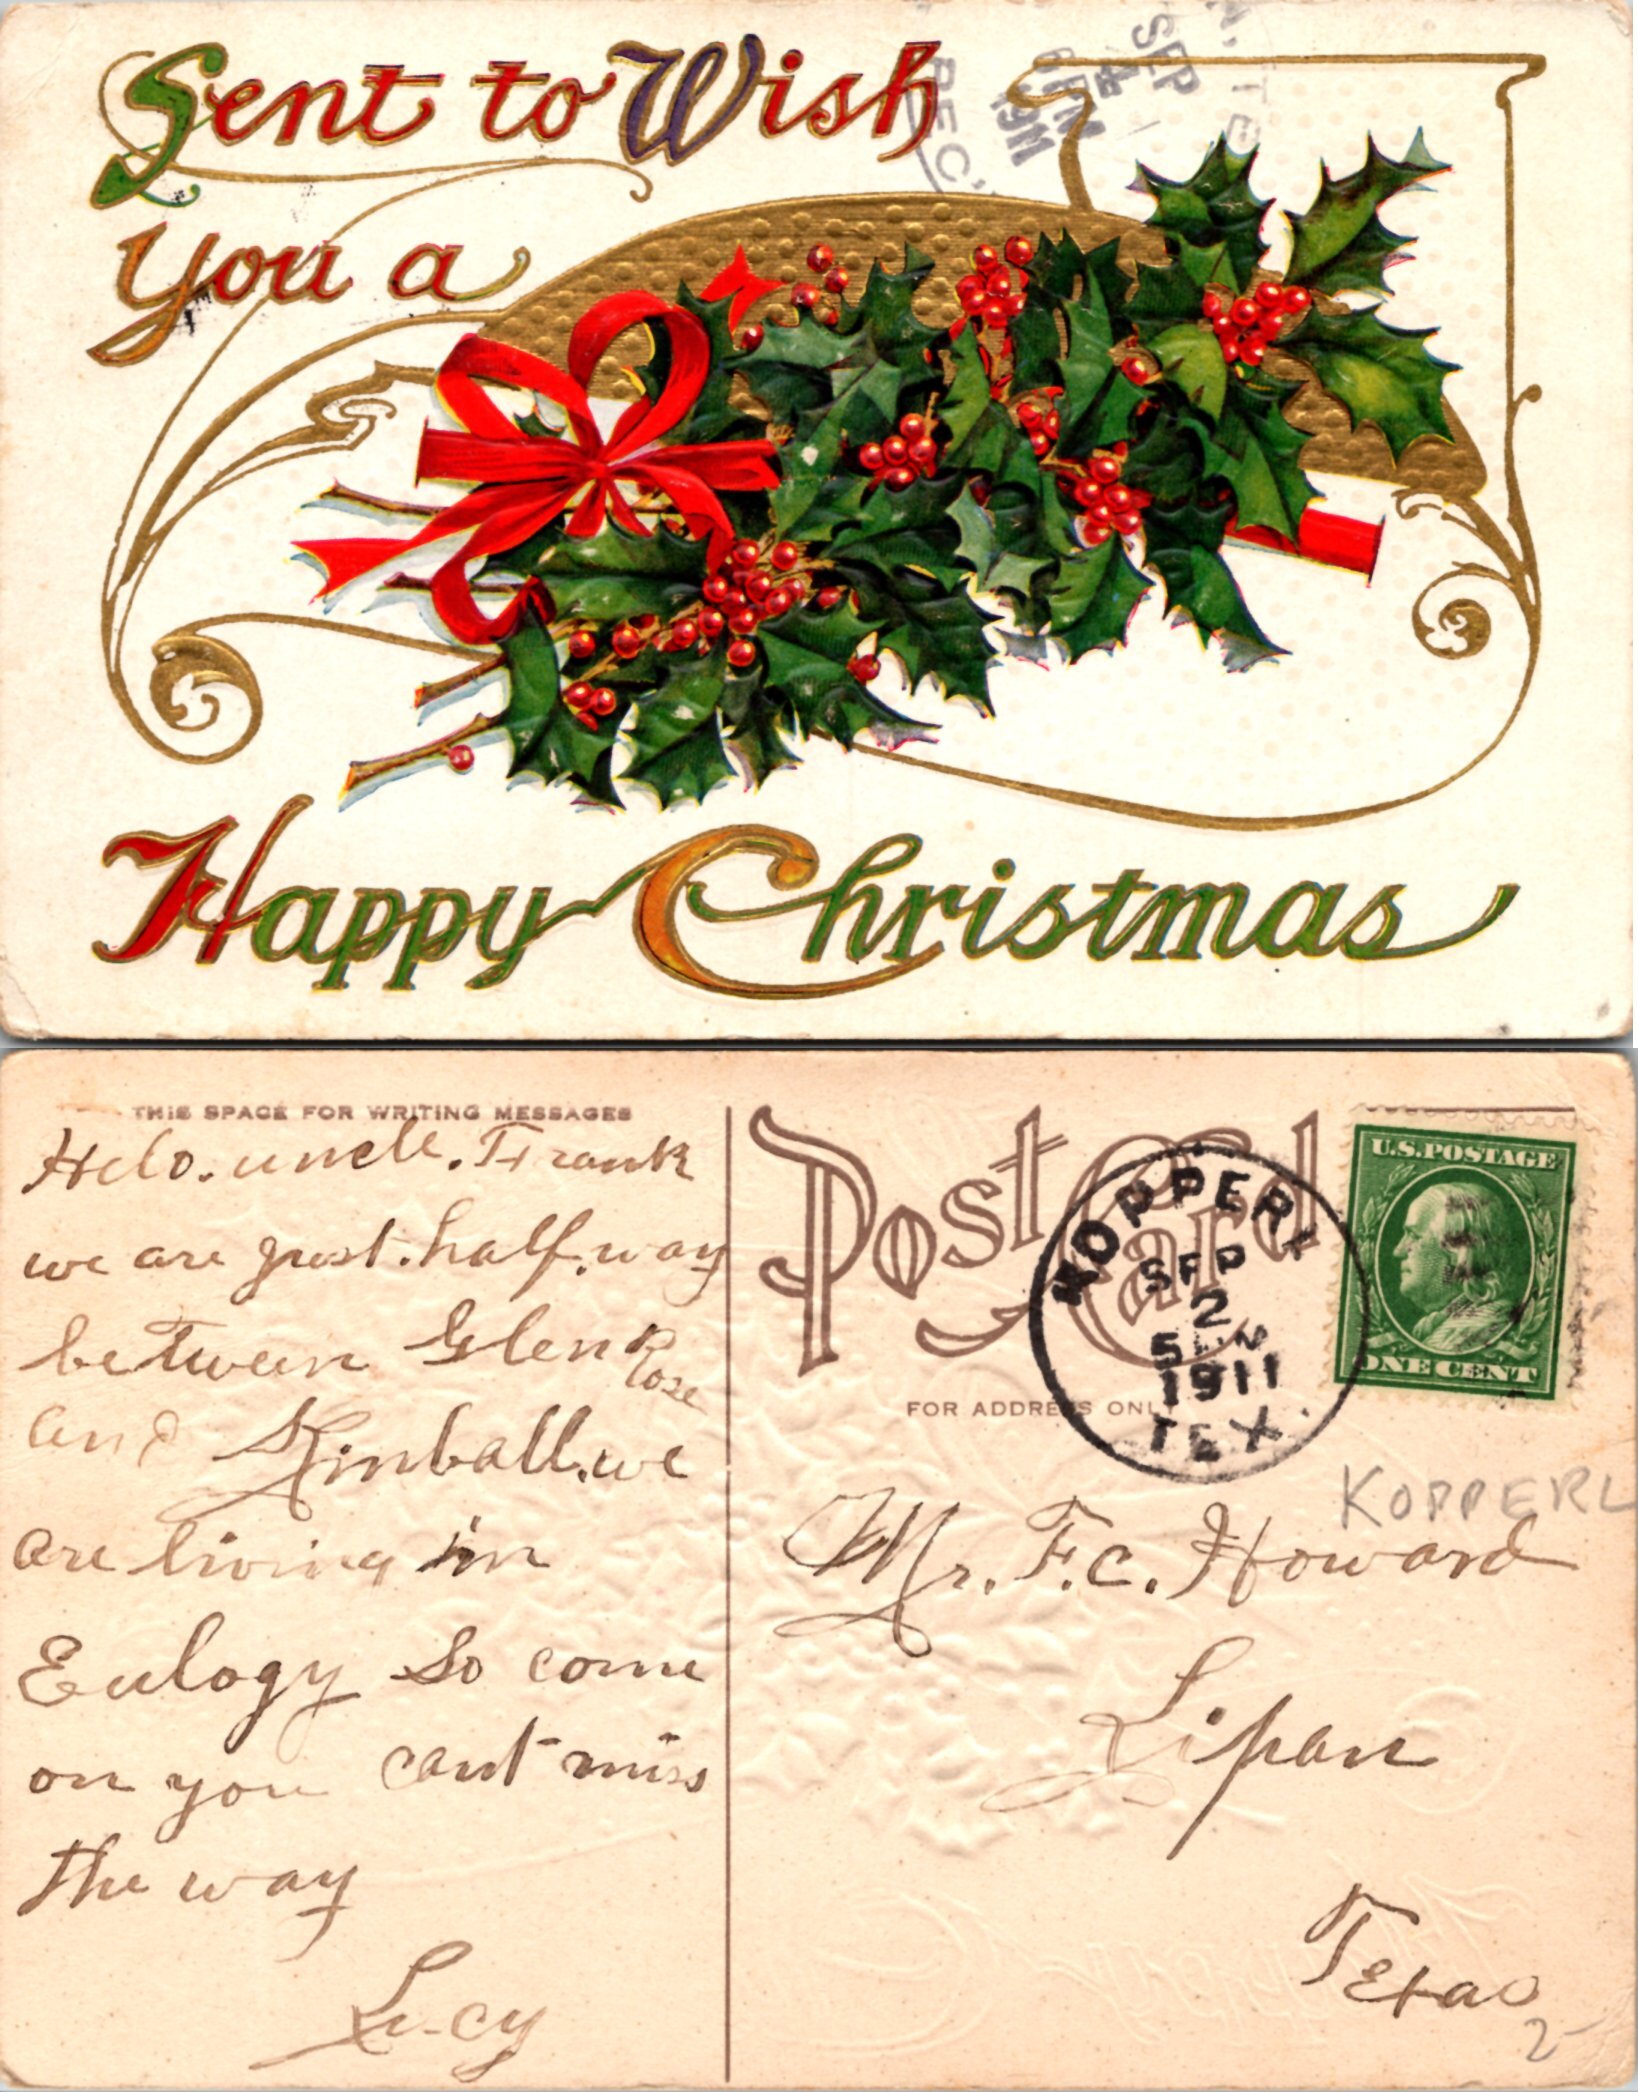 Sent to Wish
You a
Happy Christmas
SEP
4
REC'
THIS SPACE FOR WRITING MESSAGES
Helo. uncle. Frank
we are just. half. way
between Glen Rose
and Kimball. we
are living in
Eulogy So come
on you cant miss
the way
Lucy
Post Card
FOR ADDRESS ONLY
KOPPERL
SEP
2
1911
TEX.
U.S. POSTAGE
ONE CENT
KOPPERL
Mr. F. C. Howard
Lipan
Texas
2